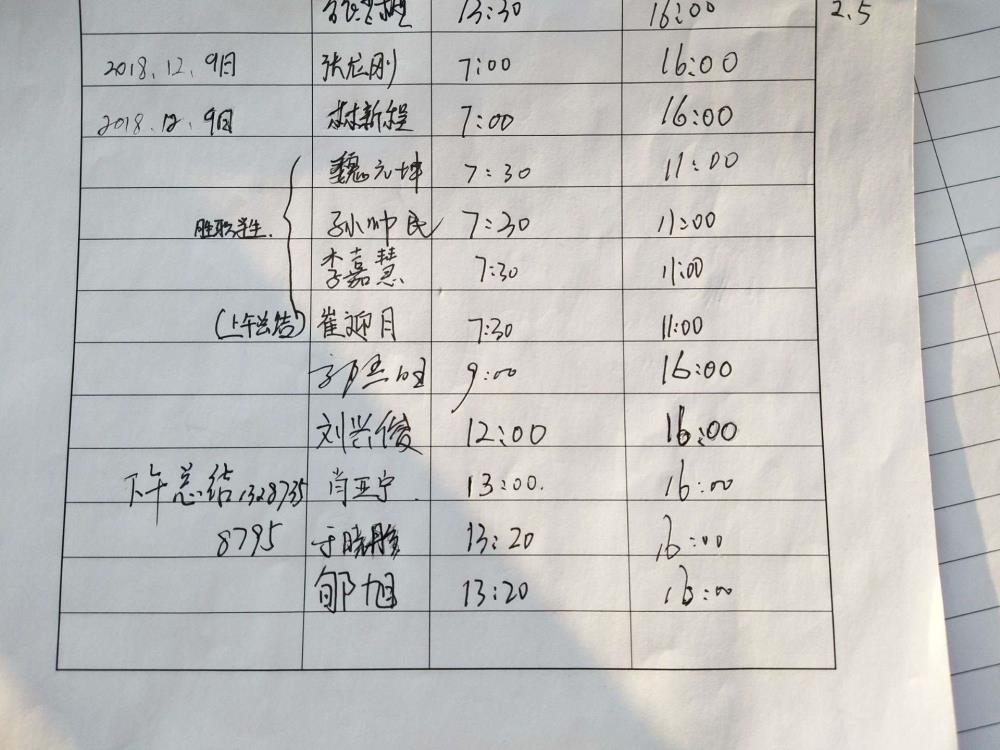 13:30 16:00 2.5
2018.12.9日 张龙刚 7:00 16:00
2018.12.9日 林新程 7:00 16:00
魏元坤 7:30 11:00
胜职学生. 孙帅民 7:30 11:00
李嘉慧 7:30 11:00
(上午总结) 崔迎月 7:30 11:00
9:00 16:00
刘兴俊 12:00 16:00
下午总结 1328735 肖亚宁. 13:00. 16:00
8795 于晓 13:20 16:00
郇旭 13:20 16:00